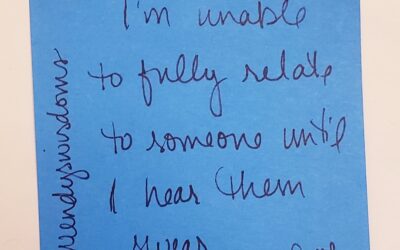 I'm unable
to fully relate
to someone until
I hear them
swear.
wendyswisdoms